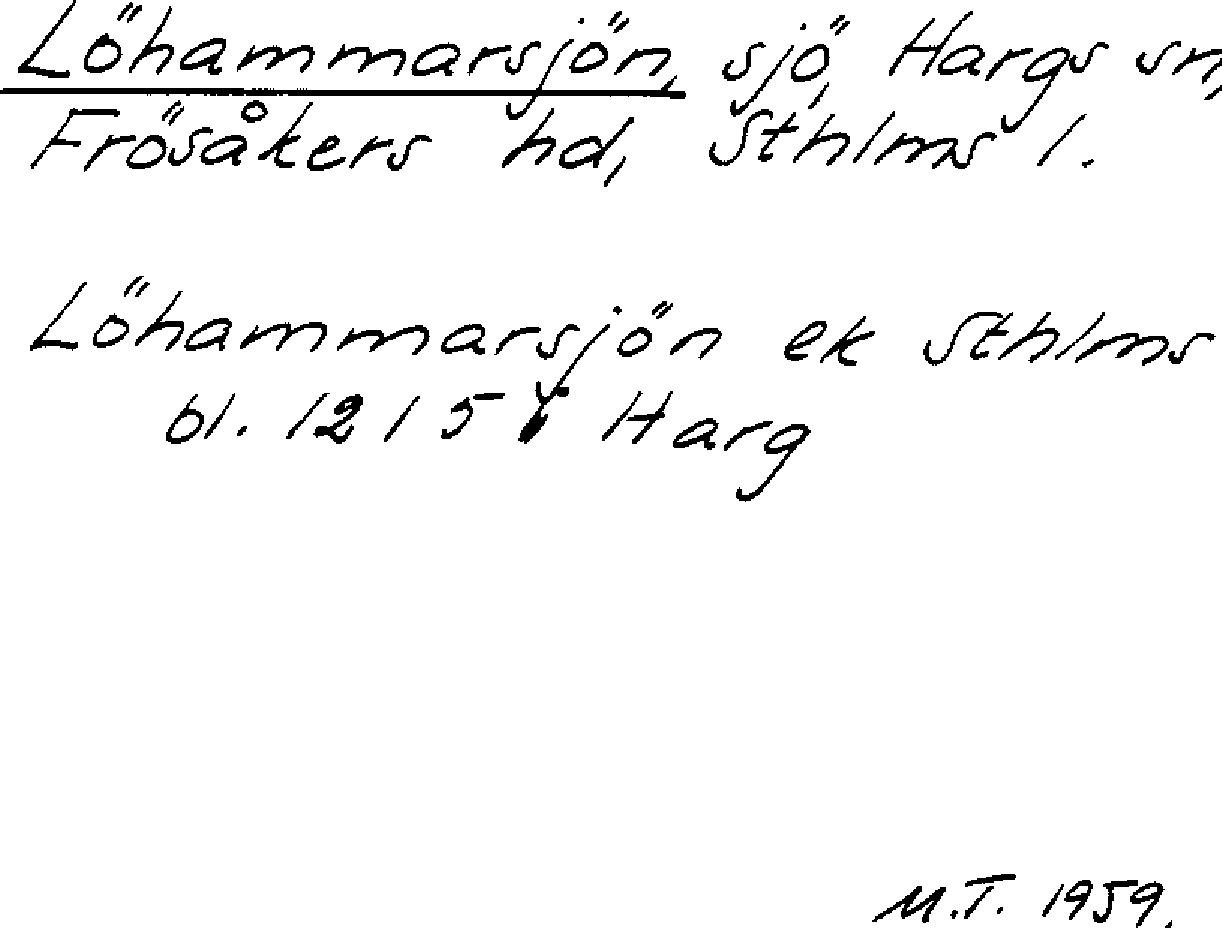 Löhammarsjön, sjö, Hargs sn,
Frösåkers hd, Sthlms l.
Löhammarsjön ek Sthlms
bl. 12 / 5 Harg
M.T. 1959.